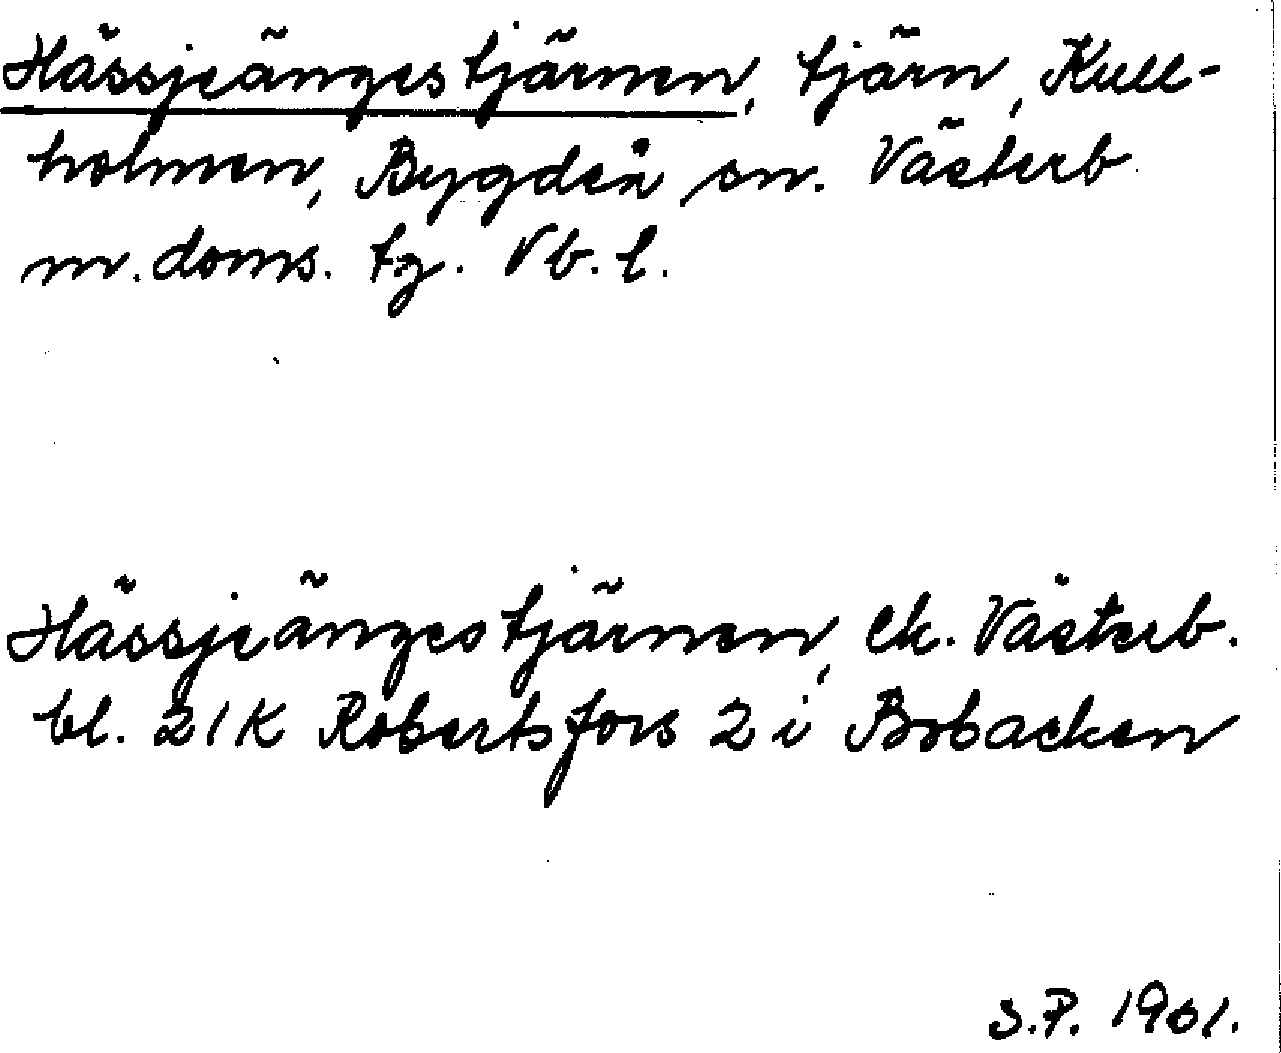 Hässjeängestjärnen, tjärn, Kull-
holmen, Bygdeå sn. Västerb
m. doms. tg. Vb. l.
Hässjeängestjärnen, ek. Västerb.
bl. 21K Robertsfors 2 i Bobacken
S.P. 1961.